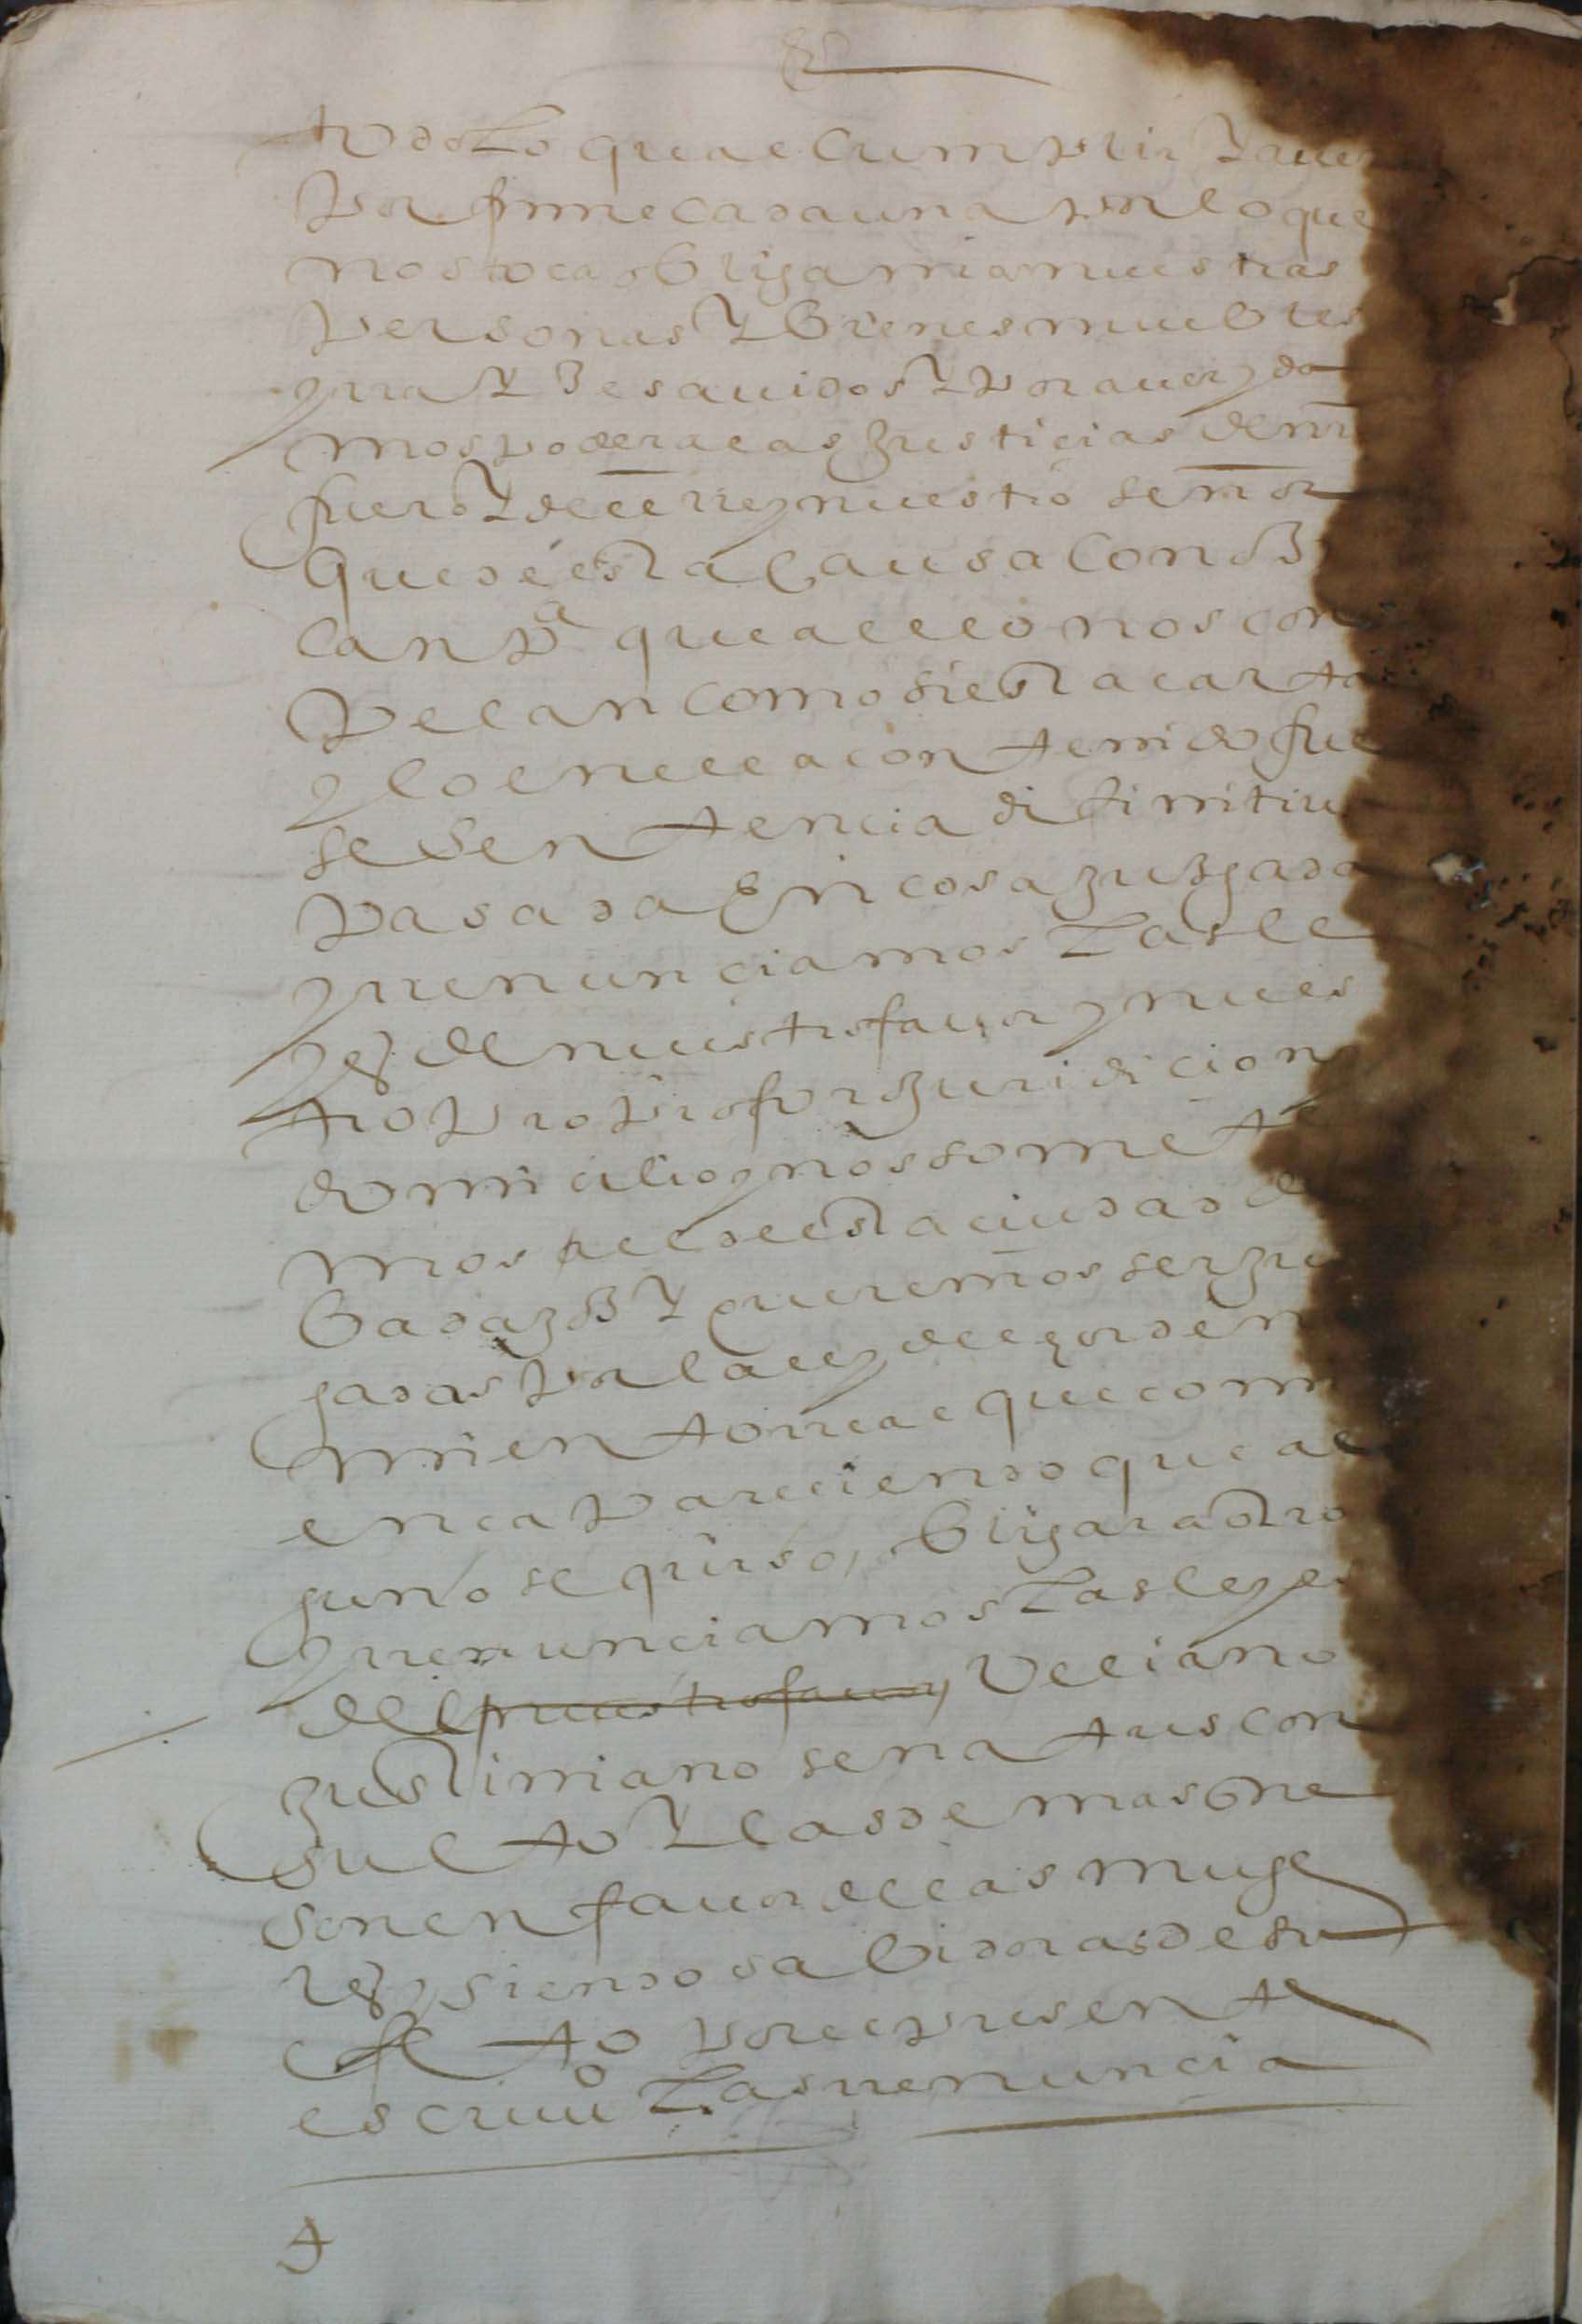 todo lo qual cumplir Y auer
por firme cada una por lo que
nos toca obligamos nuestras
personas Y bienes muebles
y rraYzes auidos Y por auer y da
mos poder a las Justicias de nro
fuero Y de el rrey nuestro señor
que de esta Causa Conoz
can pa que a ello nos con
pelan como si esta carta
y lo en ella contenido fue
se sentencia difinitiua
pasada En cosa juzgada
y rrenunciamos Las le
yes de nuestro fauor y nues
tro propio fuero Juridicion
domicilio y nos somete
mos al de esta ciudad de
badajoz Y queremos ser juz
gadas por la ley del hordena
miento rreal que comi
enca pareciendo que al
guno se quiso obligar a otro
y rrenunciamos Las leyes
del nuestro fauor Veliano
justiniano senatus con
sulto Y las demas que
son en fauor de las muge
res y siendo sabidoras de su
efeto por el presente
escriuo Las rrenuncia